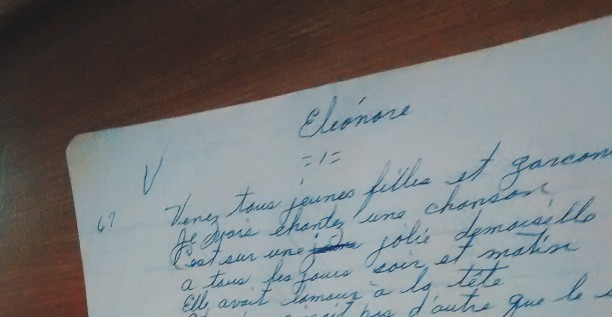 Eleónore
=1=
V
67
Venez tous jeunes filles et garcon
Je vais chantez une chanson
C'est sur une jolie demoiselle
a tous les jours soir et matin
Elle avait l'amour à la tête
pas d'autre que le